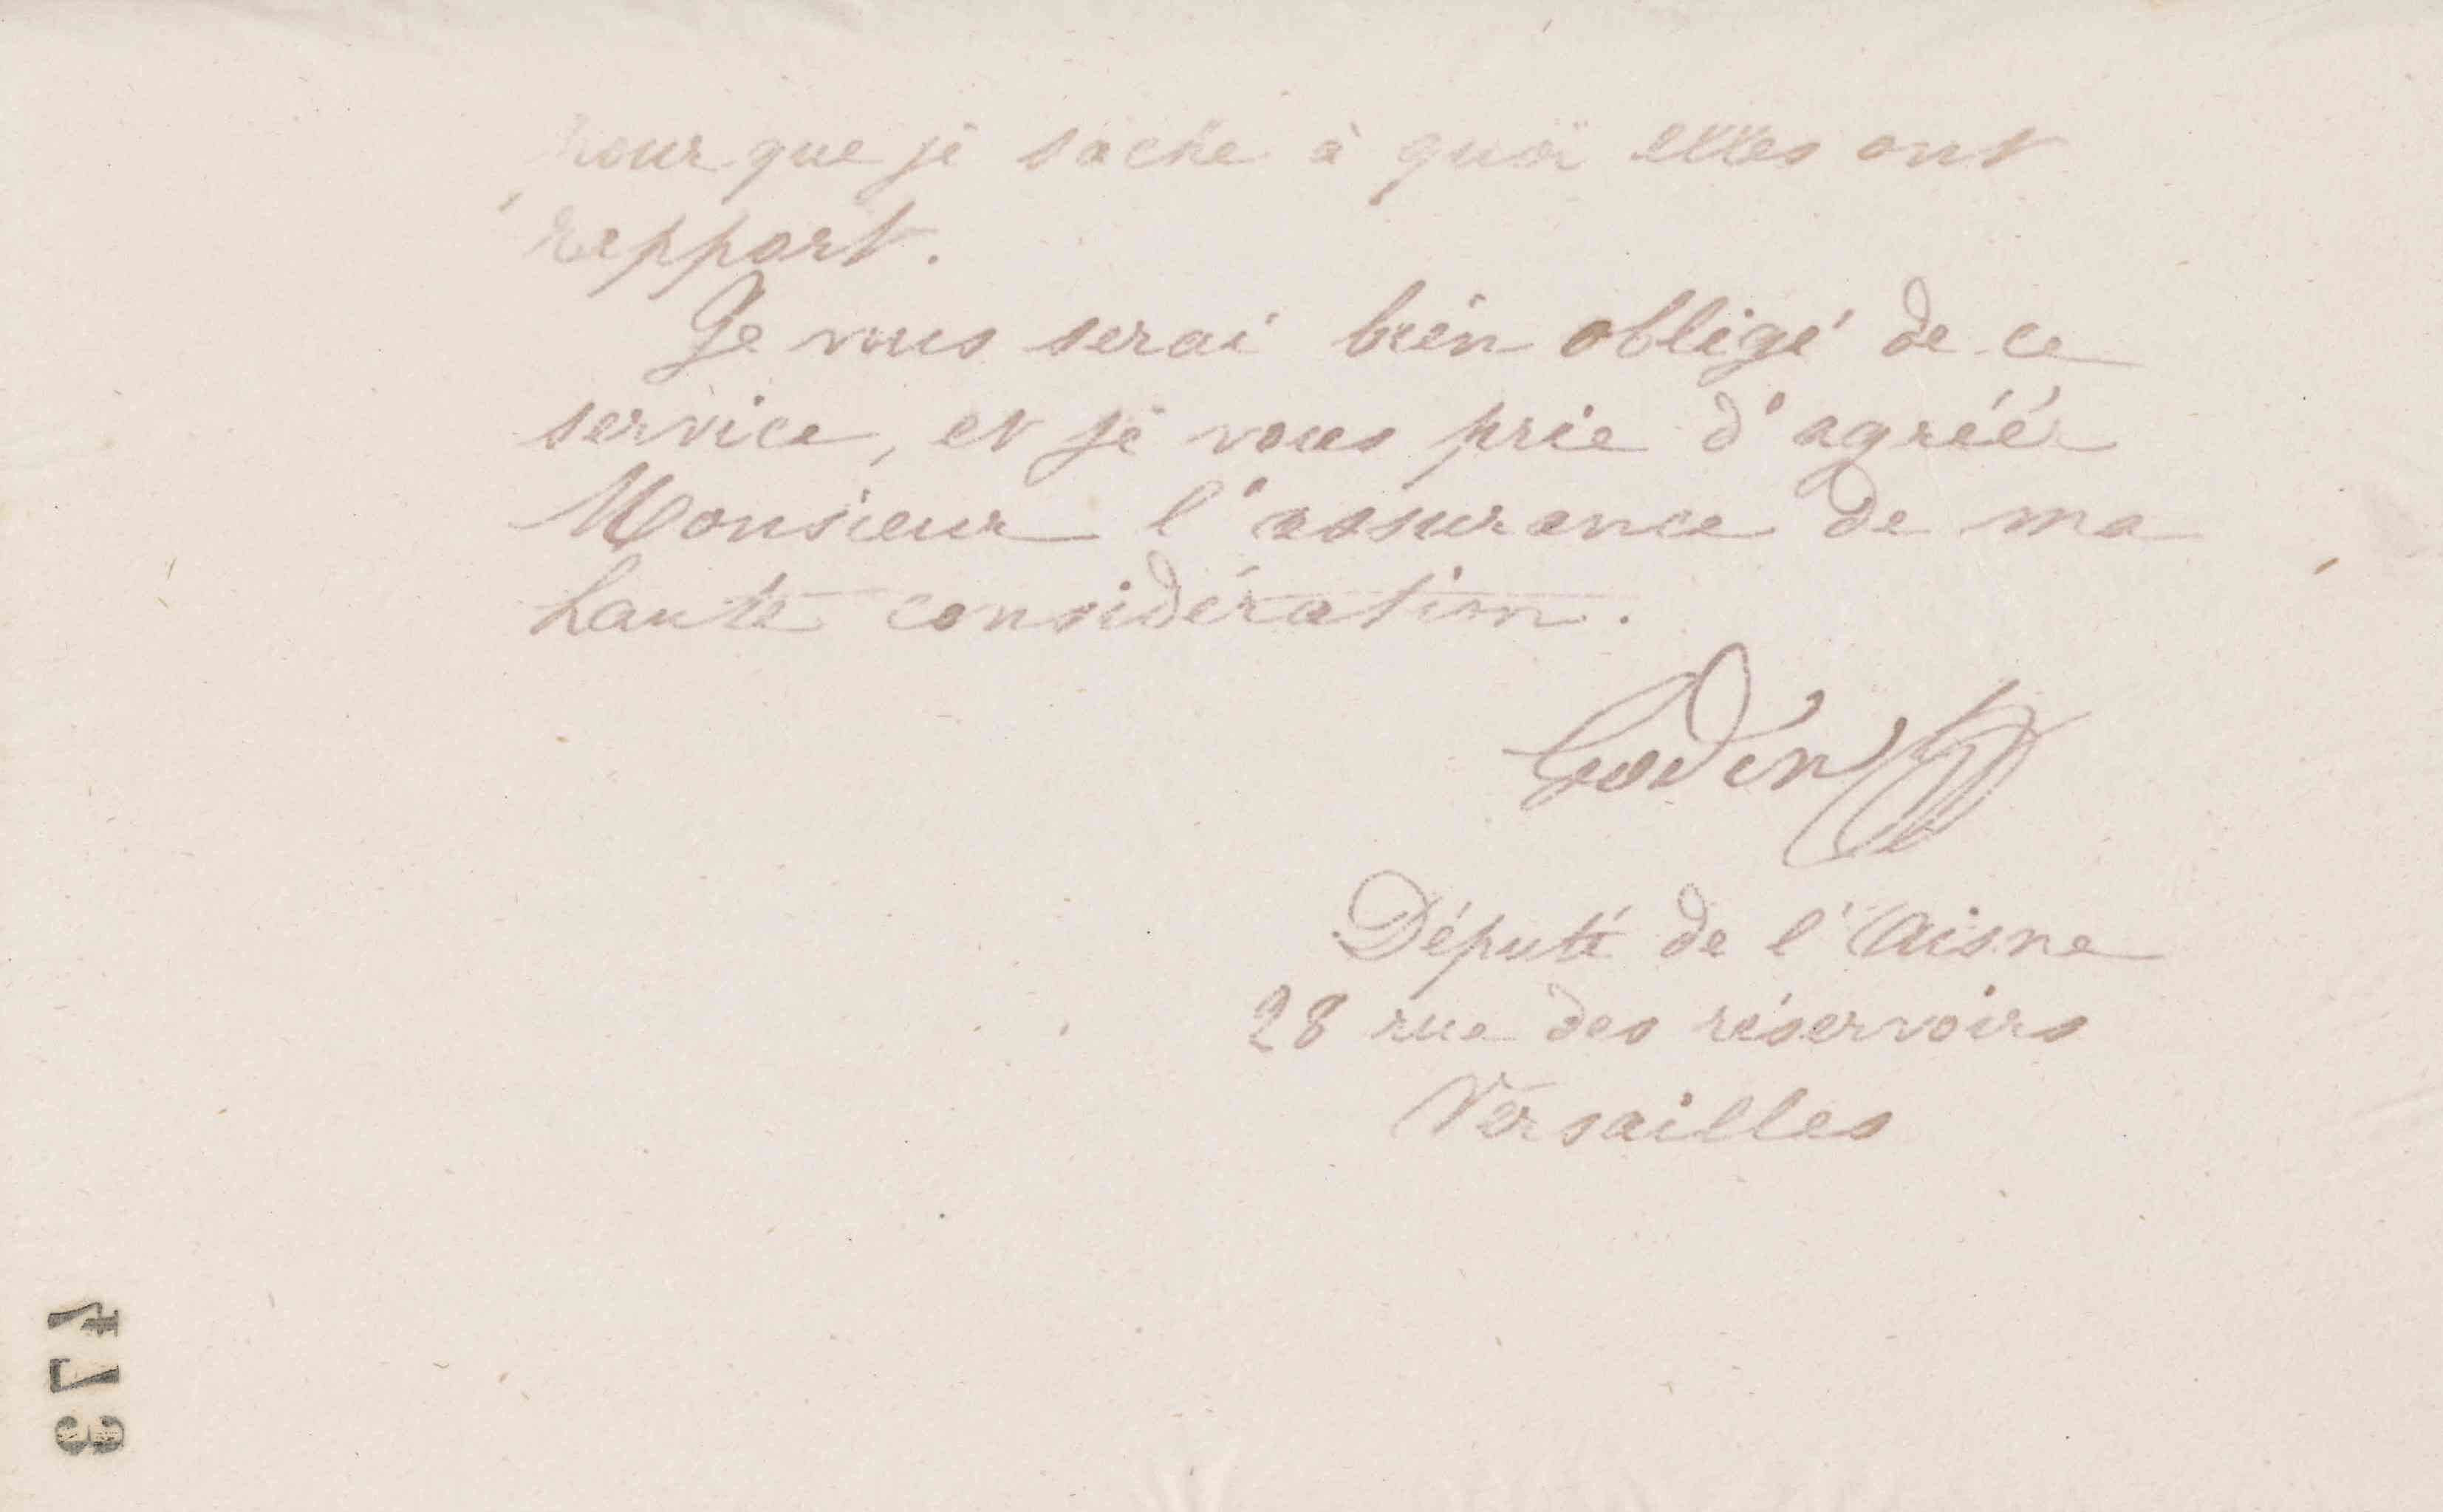 pour que je sache à quoi elles ont
rapport.
Je vous serai bien obligé de ce
service, et je vous prie d'agréér
Monsieur l'assurance de ma
haute considération.
Godin
Député de l'Aisne
28 rue des réservoirs
Versailles
473